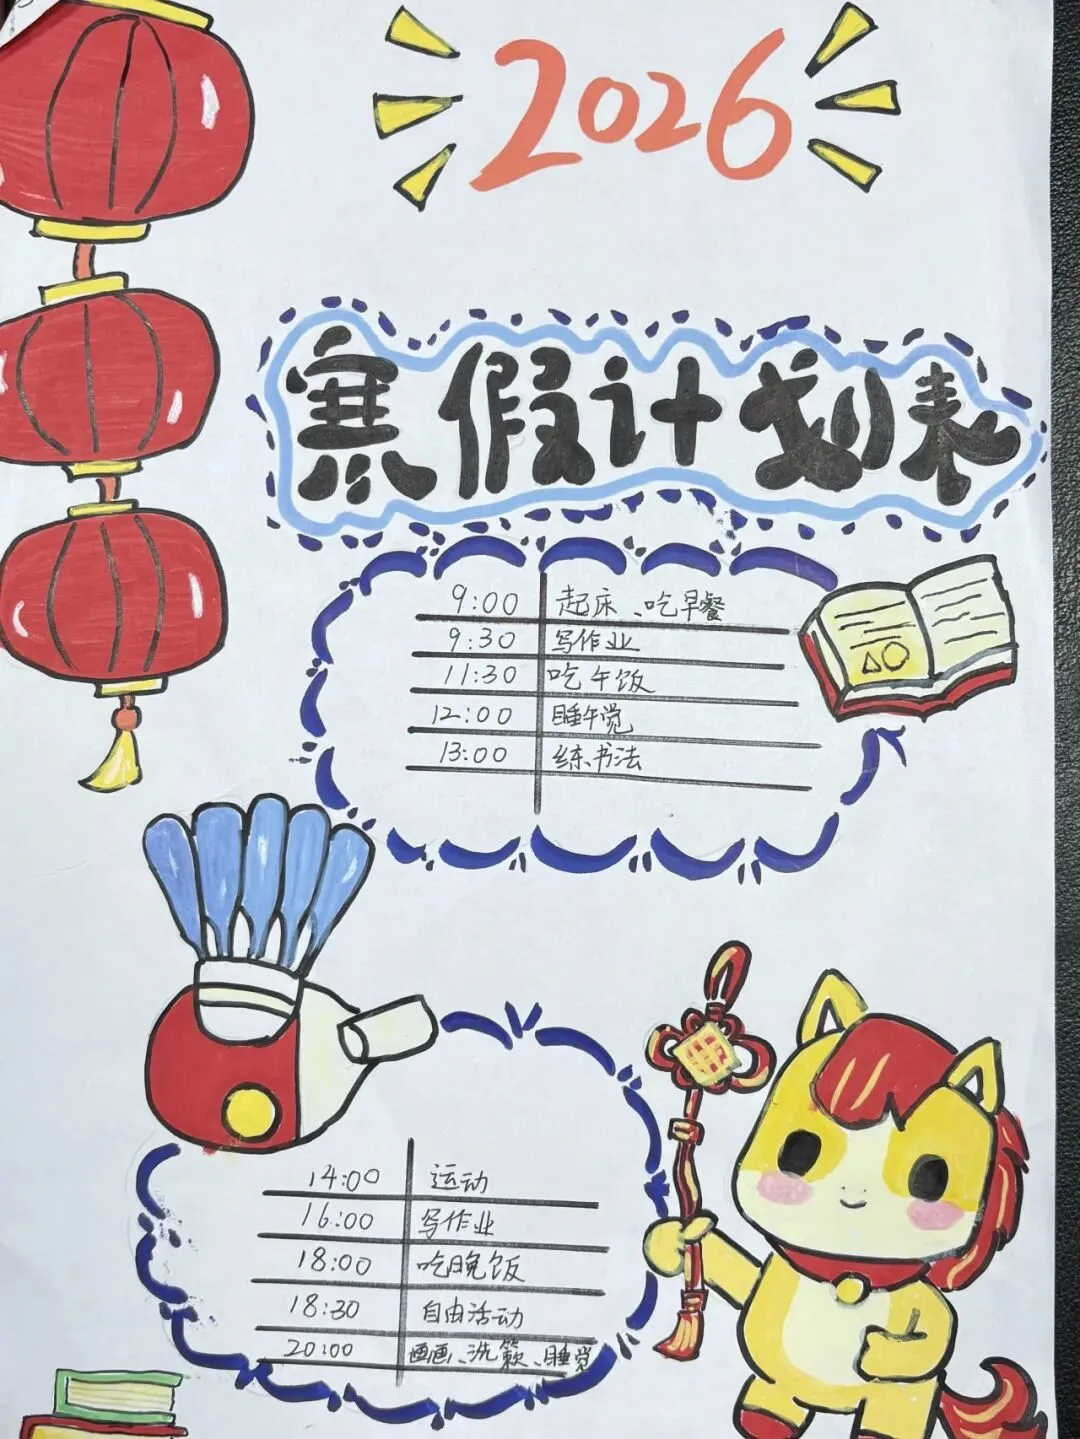 2026
寒假计划表
9:00 起床、吃早餐
9:30 写作业
11:30 吃午饭
12:00 睡午觉
13:00 练书法
14:00 运动
16:00 写作业
18:00 吃晚饭
18:30 自由活动
20:00 画画、洗簌、睡觉